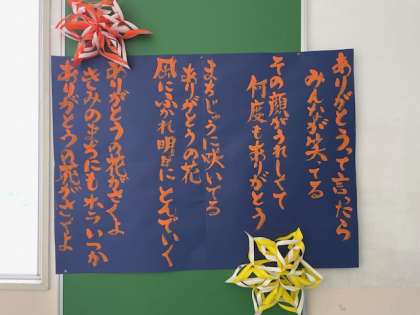 ありがとうって言ったら
みんなが笑てる
その顔がうれしくて
何度もありがとう
まちじゅうに咲いてる
ありがとうの花
風にふかれ明日に とんでいく
ありがとうの花がさくよ
きみのまちにも ホラいつか
ありがとうの花がさくよ